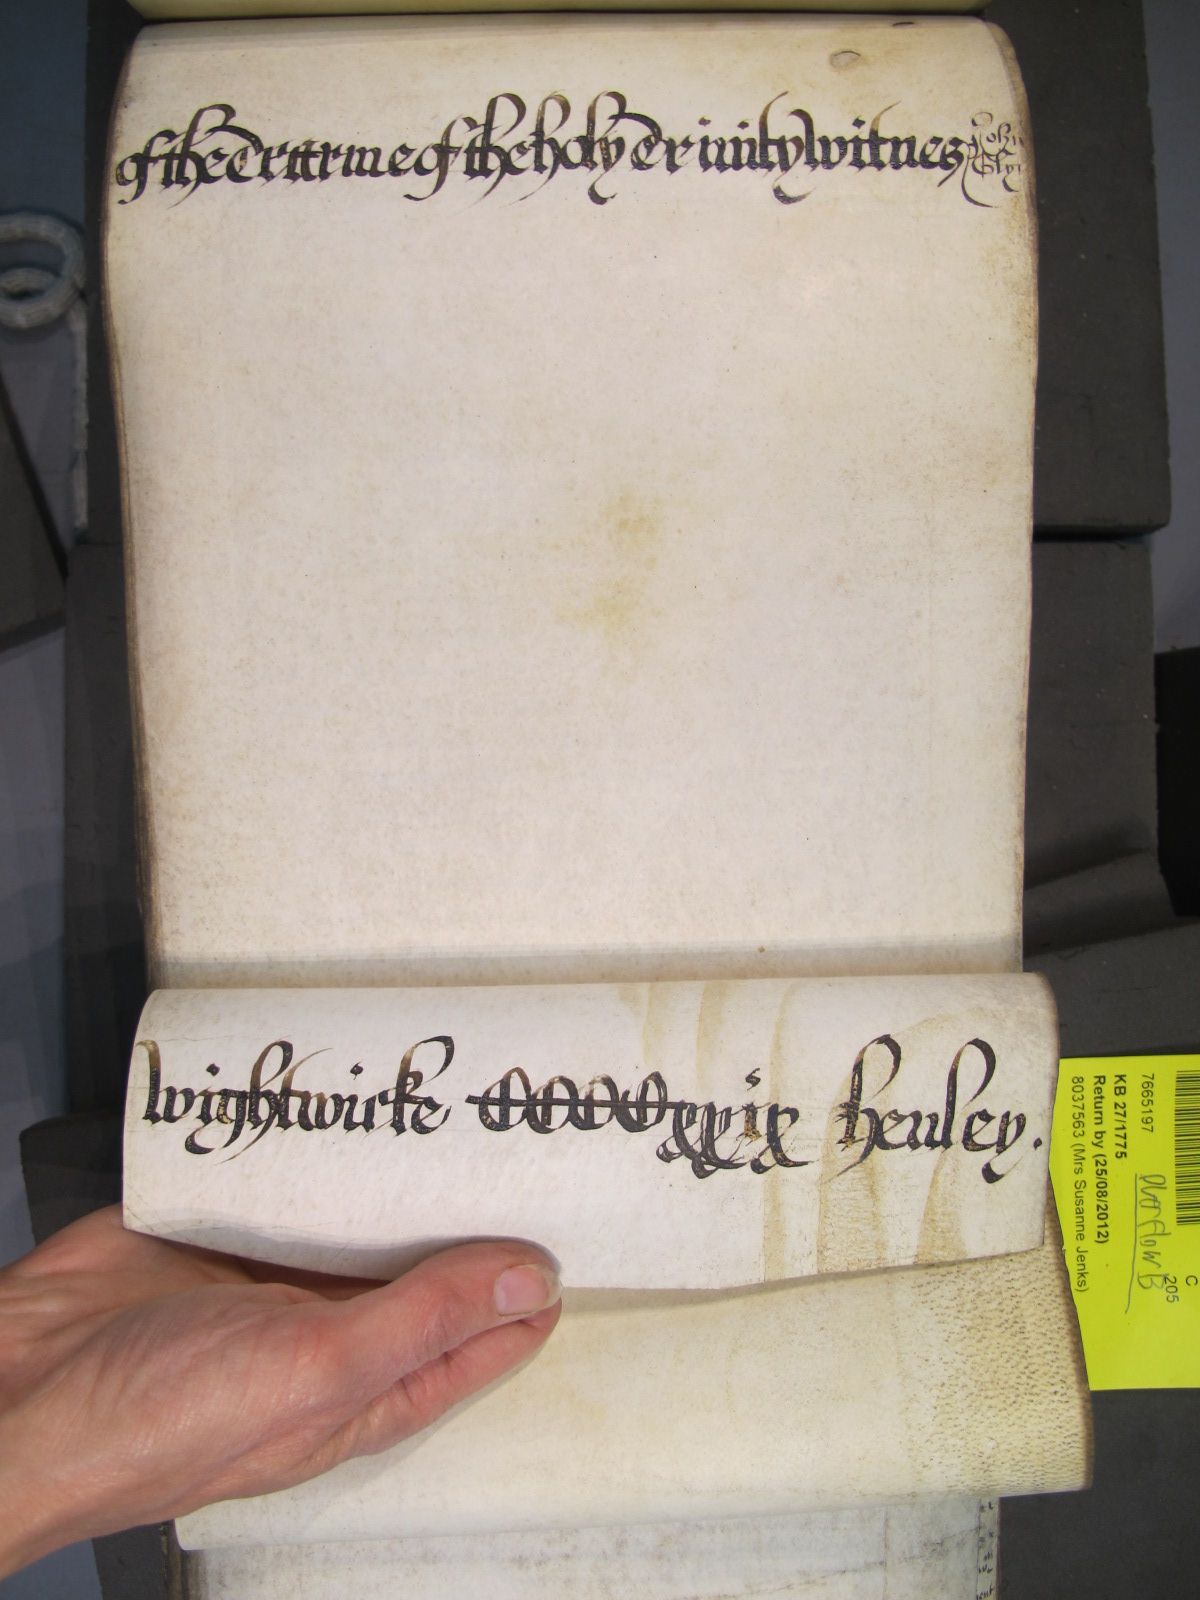 of the Tearme of the holy Trinity witnes John
Gly
wightwicke CCCCxxix henley.
7665197
KB 27/1775
Return by (25/08/2012)
8037563 (Mrs Susanne Jenks)
C
205
Overflow B